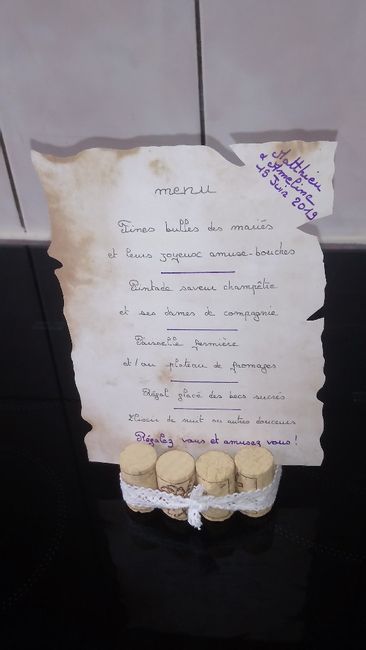 Matthieu
& Ameline
15 Juin 2019
menu
Fines bulles des mariés
et leurs joyeux amuse-bouches
Pintade saveur champêtre
et ses dames de compagnie
Farandole fermière
et/ou plateau de fromages
Régal glacé des becs sucrés
Liqueur de nuit ou autres douceurs
Régalez vous et amusez vous !